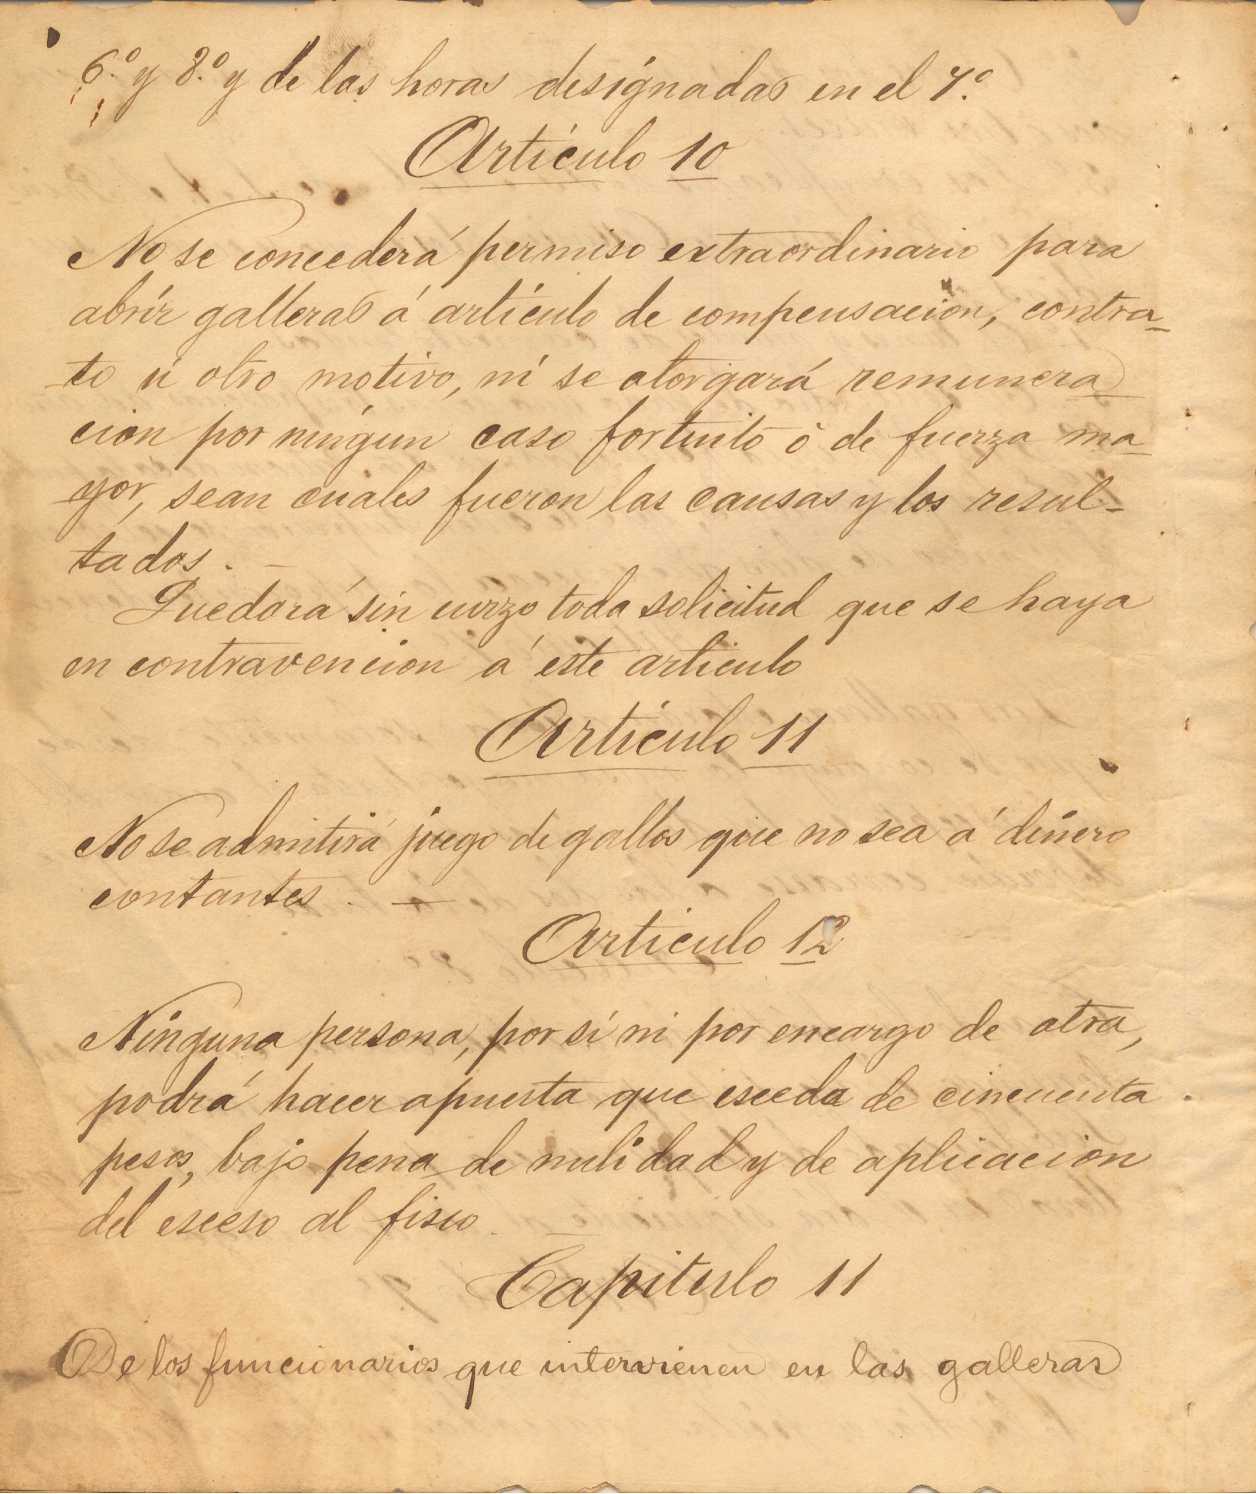 6.º y 8.º y de las horas designadas en el 7.º
Artículo 10
No se concederá permiso extraordinario para
abrir galleras á artículo de compensacion, contra-
to ú otro motivo, ni se otorgará remunera
cion por ningun caso fortuito ó de fuerza ma-
yor, sean cuales fueron las causas y los resul-
tados. -
Quedará sin curzo toda solicitud que se haya
en contravencion á este artículo
Artículo 11
No se admitirá juego de gallos que no sea á dinero
contantes. -
Artículo 12
Ninguna persona, por sí ni por encargo de otra,
podrá hacer apuesta que esceda de cincuenta
pesos, bajo pena de nulidad y de aplicacion
del esceso al fisco. -
Capitulo 11
De los funcionarios que intervienen en las galleras